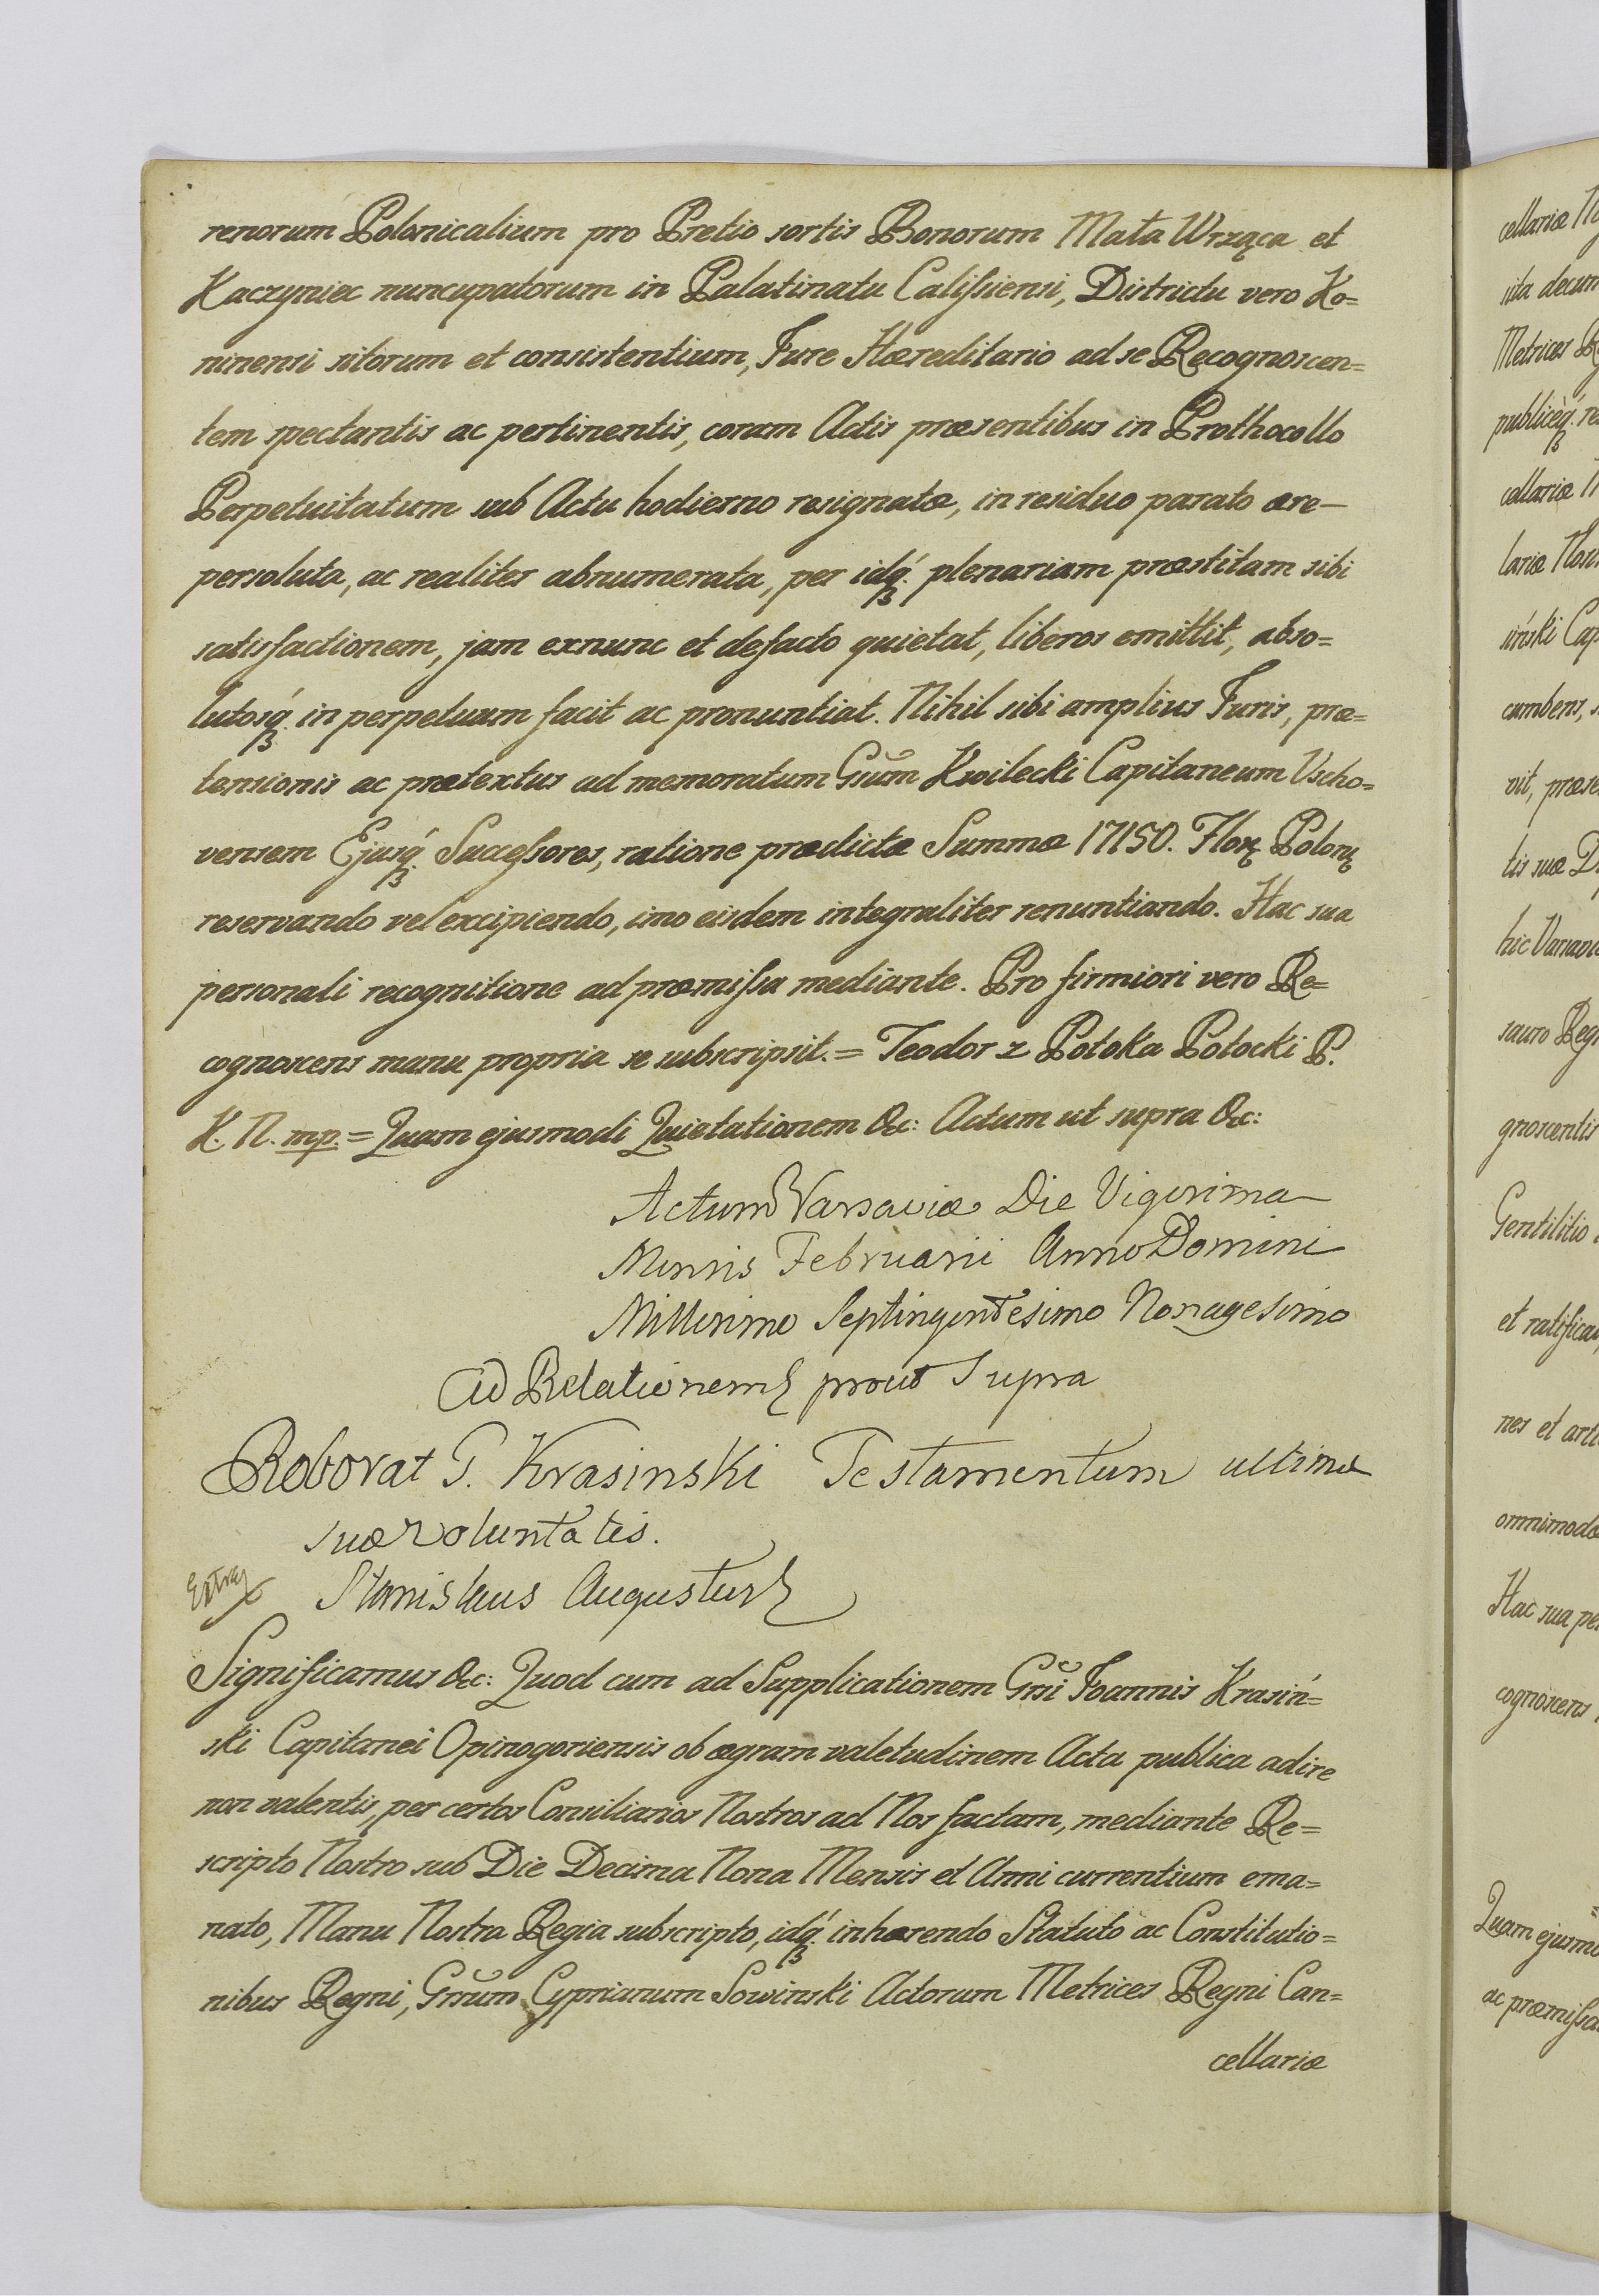 renorum Polonicalium pro Pretio sortis Bonorum Mała Wrząca et
Kaczyniec nuncupatorum in Palatinatu Calissiensi, Districtu vero Ko=
ninensi sitorum et consistentium, Jure Hæreditario ad se Recognoscen=
tem spectantis ac pertinentis, coram Actis præsentibus in Prothocollo
Perpetuitatum sub Actu hodierno resignatæ, in residuo parato ære—
persoluta, ac realiter abnumerata, per idq́. plenariam præstitam sibi
satisfactionem, jam exnunc et defacto quietat, liberos emittit, abso=
lutosq́. in perpetuum facit ac pronuntiat. Nihil sibi amplius Juris, præ=
tensionis ac prætextus ad memoratum Gsum Kwilecki Capitaneum Vscho=
vensem Ejusq́. Successores, ratione prædictæ Summæ 17150. Flor Polon
reservando vel excipiendo, imo eisdem integraliter renuntiando. Hac sua
personali recognitione ad præmissa mediante. Pro firmiori vero Re=
cognoscens manu propria se subscripsit. = Teodor z Potoka Potocki P.
K. N. mp. = Quam ejusmodi Quietationem &c: Actum ut supra &c:
Actum Varsaviæ Die Vigesima
Mensis Februarii Anno Domini
Millesimo Septingentesimo Nonagesimo
Ad Relationem prout Supra
Roborat G. Krasinski Testamentum ultimæ
suæ voluntatis.
Extra Stanislaus Augustus
Significamus &c: Quod cum ad Supplicationem Gsi Joannis Krasiń=
ski Capitanei Opinogoriensis ob ægram valetudinem Acta publica adire
non valentis, per certos Consiliarios Nostros ad Nos factam, mediante Re=
scripto Nostro sub Die Decima Nona Mensis et Anni currentium ema=
nato, Manu Nostra Regia subscripto, idq́. inhærendo Statuto ac Constitutio=
nibus Regni, Gsum Cyprianum Sowinski Actorum Metrices Regni Can=
cellariæ
cellariæ
sita
Metrices
publiceq́.
cellariæ
lariæ
siński
cumbens,
vit,
tis suæ
hic
sauro
gnoscentis
Gentilitio
et
nes et
omnimodo
Hac sua
cognoscens
Quam
ac